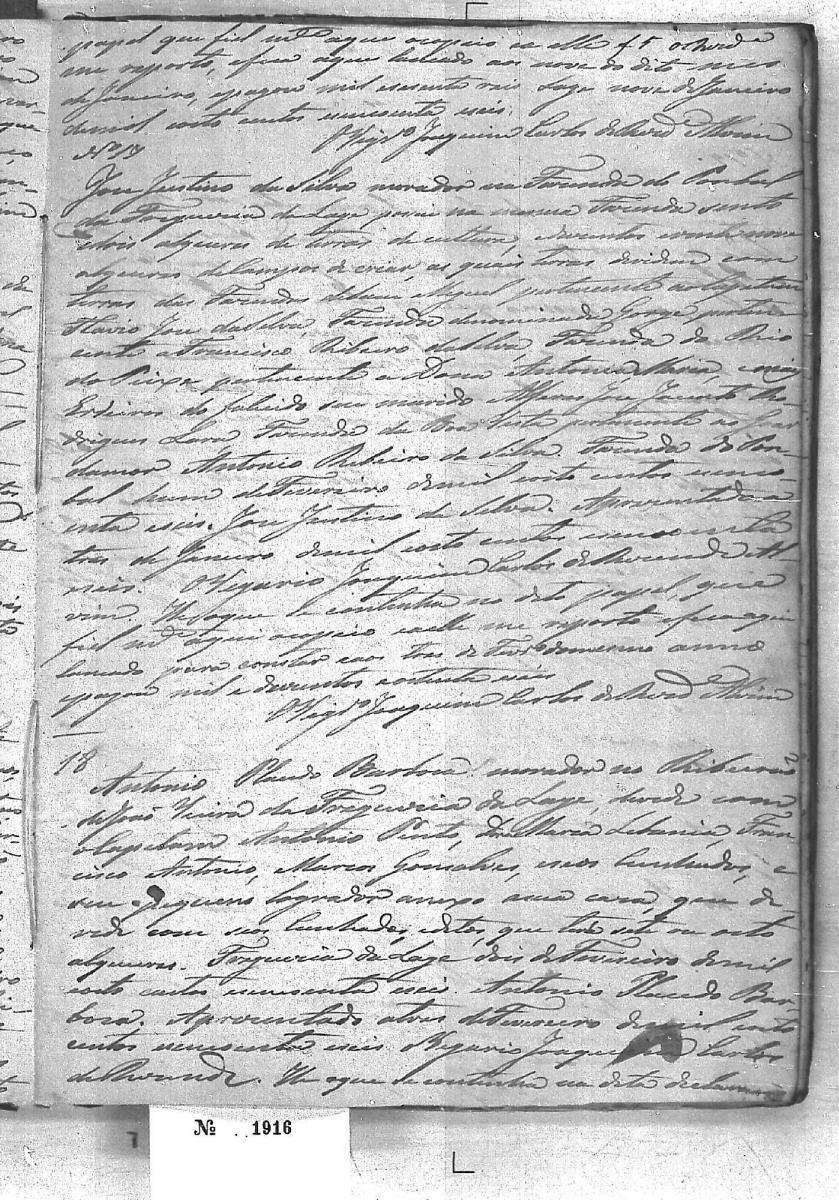 papel que fiel m.te aqui copiei e a elle
me reporto, e fica aqui lancado aos nove do dito mes
de Janeiro, e pagou mil e secenta reis Lage nove de Janeiro
de mil oito centos sincoenta e seis.
O Vigr.o Joaquim Carlos de Resd.e Alvim
Nº 17
Jose Justino da Silva morador na Fazenda do Pombal
da Freguezia da Lage, possue na mesma Fazenda sento
e dois alqueres de terras de cultura, e duzentos e vinte nove
alqueres de Campos de criar, as quais terras devidem com
terras das Fazendas de pertencente ao Capitam
Flavio Jose da Silva, Fazenda denominada Gorge, perten
cente a Francisco Ribeiro da Silva, Fazenda do Rio
do Peixe pertencente a Dona Antonia Maria, e mais
Erdeiros do falecido seu marido Alferes Jose Jacinto Ro
drigues Lara Fazenda da Boa Vista pertencente ao Guar
damor Antonio Ribeiro da Silva. Fazenda do Pom-
bal hum de Fevereiro de mil oito centos sinco
enta e seis. Jose Justino da Silva. Aprezentada a
tres de Janeiro de mil oito centos sincoenta
e seis. O Vigario Joaquim Carlos de Resende Al-
vim. He o que se continha no dito papel, que
fiel m.te aqui copiei e a elle me reporto e fica aqui
lancado para constar e aos tres de Fevr.o do mesmo anno
e pagou mil e duzentos e oitenta e seis
O Vigr.o Joaquim Carlos de Resd.e Alvim
18
Antonio Placido Barboza morador no Ribeirão
de João Vieira da Freguezia da Lage, devide com
o Capitam Antonio Pinto, Maria Libania, Fran
cisco Antonio, Marcos Gonsalves, e seos Cunhados, e
seu pequeno logrador anexo a sua caza, que de
vide com seos Cunhados, e ditos, que tera sete ou oito
alqueres. Freguezia da Lage dois de Fevereiro de mil
oito centos sincoenta e seis. Antonio Placido Bar
boza. Aprezentado a tres de Fevereiro de mil oito
centos sincoenta e seis. O Vegario Joaquim Carlos
de Resende. He o que se continha na dita declara
Nº 1916